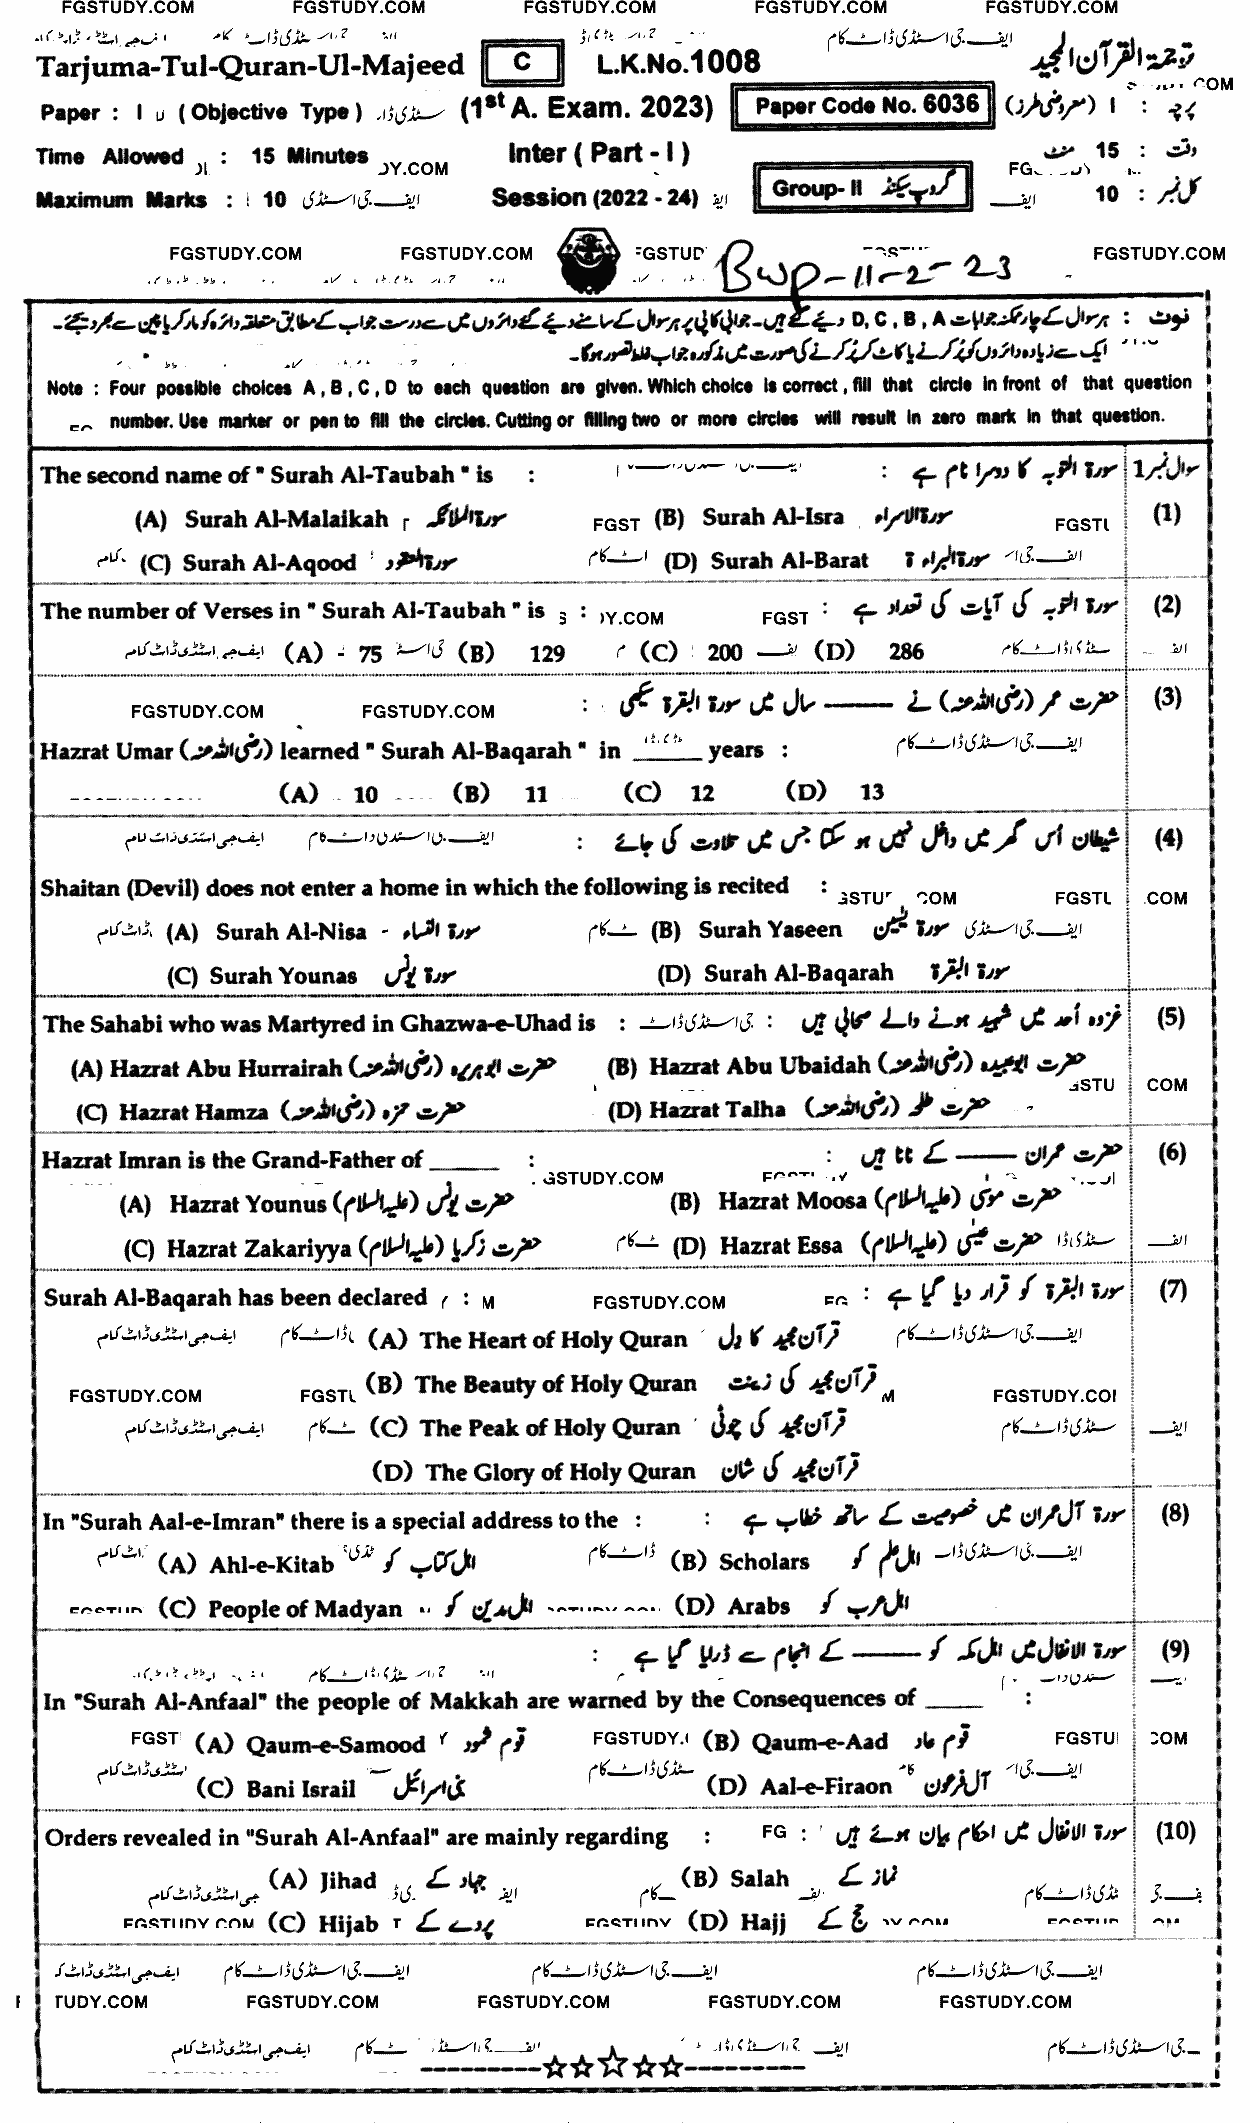 FGSTUDY.COM FGSTUDY.COM FGSTUDY.COM FGSTUDY.COM FGSTUDY.COM
Tarjuma-Tul-Quran-Ul-Majeed C L.K.No.1008 ترجمۃ القرآن المجید
Paper : I (Objective Type) (1st A. Exam. 2023) Paper Code No. 6036 پرچہ : I (معروضی طرز)
Time Allowed : 15 Minutes Inter ( Part - I ) وقت : 15 منٹ
Maximum Marks : 10 Session (2022 - 24) Group- II گروپ سیکنڈ کل نمبر : 10
FGSTUDY.COM FGSTUDY.COM Bwp-11-2-23 FGSTUDY.COM
نوٹ : ہر سوال کے چار ممکنہ جوابات D, C, B, A دیئے گئے ہیں۔ جوابی کاپی پر ہر سوال کے سامنے دیئے گئے دائروں میں سے درست جواب کے مطابق متعلقہ دائرہ کو مارکر یا پین سے بھر دیجئے۔
ایک سے زیادہ دائروں کو پُر کرنے یا کاٹ کر پُر کرنے کی صورت میں مذکورہ جواب غلط تصور ہوگا۔
Note : Four possible choices A , B , C , D to each question are given. Which choice is correct , fill that circle in front of that question
number. Use marker or pen to fill the circles. Cutting or filling two or more circles will result in zero mark in that question.
The second name of " Surah Al-Taubah " is : سورۃ التوبہ کا دوسرا نام ہے : سوال نمبر 1
(A) Surah Al-Malaikah سورۃ الملائکہ (B) Surah Al-Isra سورۃ الاسراء (1)
(C) Surah Al-Aqood سورۃ العقود (D) Surah Al-Barat سورۃ البراءۃ
The number of Verses in " Surah Al-Taubah " is : سورۃ التوبہ کی آیات کی تعداد ہے : (2)
(A) 75 (B) 129 (C) 200 (D) 286
حضرت عمر (رضی اللہ عنہ) نے ——— سال میں سورۃ البقرۃ سیکھی : (3)
FGSTUDY.COM FGSTUDY.COM
Hazrat Umar (رضی اللہ عنہ) learned " Surah Al-Baqarah " in ______ years :
(A) 10 (B) 11 (C) 12 (D) 13
شیطان اُس گھر میں داخل نہیں ہو سکتا جس میں تلاوت کی جائے : (4)
Shaitan (Devil) does not enter a home in which the following is recited :
(A) Surah Al-Nisa سورۃ النساء (B) Surah Yaseen سورۃ یٰسین
(C) Surah Younas سورۃ یونس (D) Surah Al-Baqarah سورۃ البقرۃ
The Sahabi who was Martyred in Ghazwa-e-Uhad is : غزوہ اُحد میں شہید ہونے والے صحابی ہیں : (5)
(A) Hazrat Abu Hurrairah (رضی اللہ عنہ) حضرت ابو ہریرہ (رضی اللہ عنہ) (B) Hazrat Abu Ubaidah (رضی اللہ عنہ) حضرت ابو عبیدہ
(C) Hazrat Hamza (رضی اللہ عنہ) حضرت حمزہ (D) Hazrat Talha (رضی اللہ عنہ) حضرت طلحہ
Hazrat Imran is the Grand-Father of ______ : حضرت عمران ——— کے نانا ہیں : (6)
(A) Hazrat Younus حضرت یونس (علیہ السلام) (B) Hazrat Moosa حضرت موسیٰ (علیہ السلام)
(C) Hazrat Zakariyya حضرت زکریا (علیہ السلام) (D) Hazrat Essa حضرت عیسیٰ (علیہ السلام)
Surah Al-Baqarah has been declared : FGSTUDY.COM سورۃ البقرۃ کو قرار دیا گیا ہے : (7)
(A) The Heart of Holy Quran قرآن مجید کا دل
(B) The Beauty of Holy Quran قرآن مجید کی زینت
(C) The Peak of Holy Quran قرآن مجید کی چوٹی
(D) The Glory of Holy Quran قرآن مجید کی شان
In "Surah Aal-e-Imran" there is a special address to the : سورۃ آل عمران میں خصوصیت کے ساتھ خطاب ہے : (8)
(A) Ahl-e-Kitab اہل کتاب کو (B) Scholars اہل علم کو
(C) People of Madyan اہل مدین کو (D) Arabs اہل عرب کو
سورۃ الانفال میں اہل مکہ کو ——— کے انجام سے ڈرایا گیا ہے : (9)
In "Surah Al-Anfaal" the people of Makkah are warned by the Consequences of _____ :
(A) Qaum-e-Samood قوم ثمود (B) Qaum-e-Aad قوم عاد
(C) Bani Israil بنی اسرائیل (D) Aal-e-Firaon آل فرعون
Orders revealed in "Surah Al-Anfaal" are mainly regarding : سورۃ الانفال میں احکام بیان ہوئے ہیں : (10)
(A) Jihad جہاد کے (B) Salah نماز کے
(C) Hijab پردے کے (D) Hajj حج کے
ایف جی اسٹڈی ڈاٹ کام ایف جی اسٹڈی ڈاٹ کام ایف جی اسٹڈی ڈاٹ کام
TUDY.COM FGSTUDY.COM FGSTUDY.COM FGSTUDY.COM FGSTUDY.COM